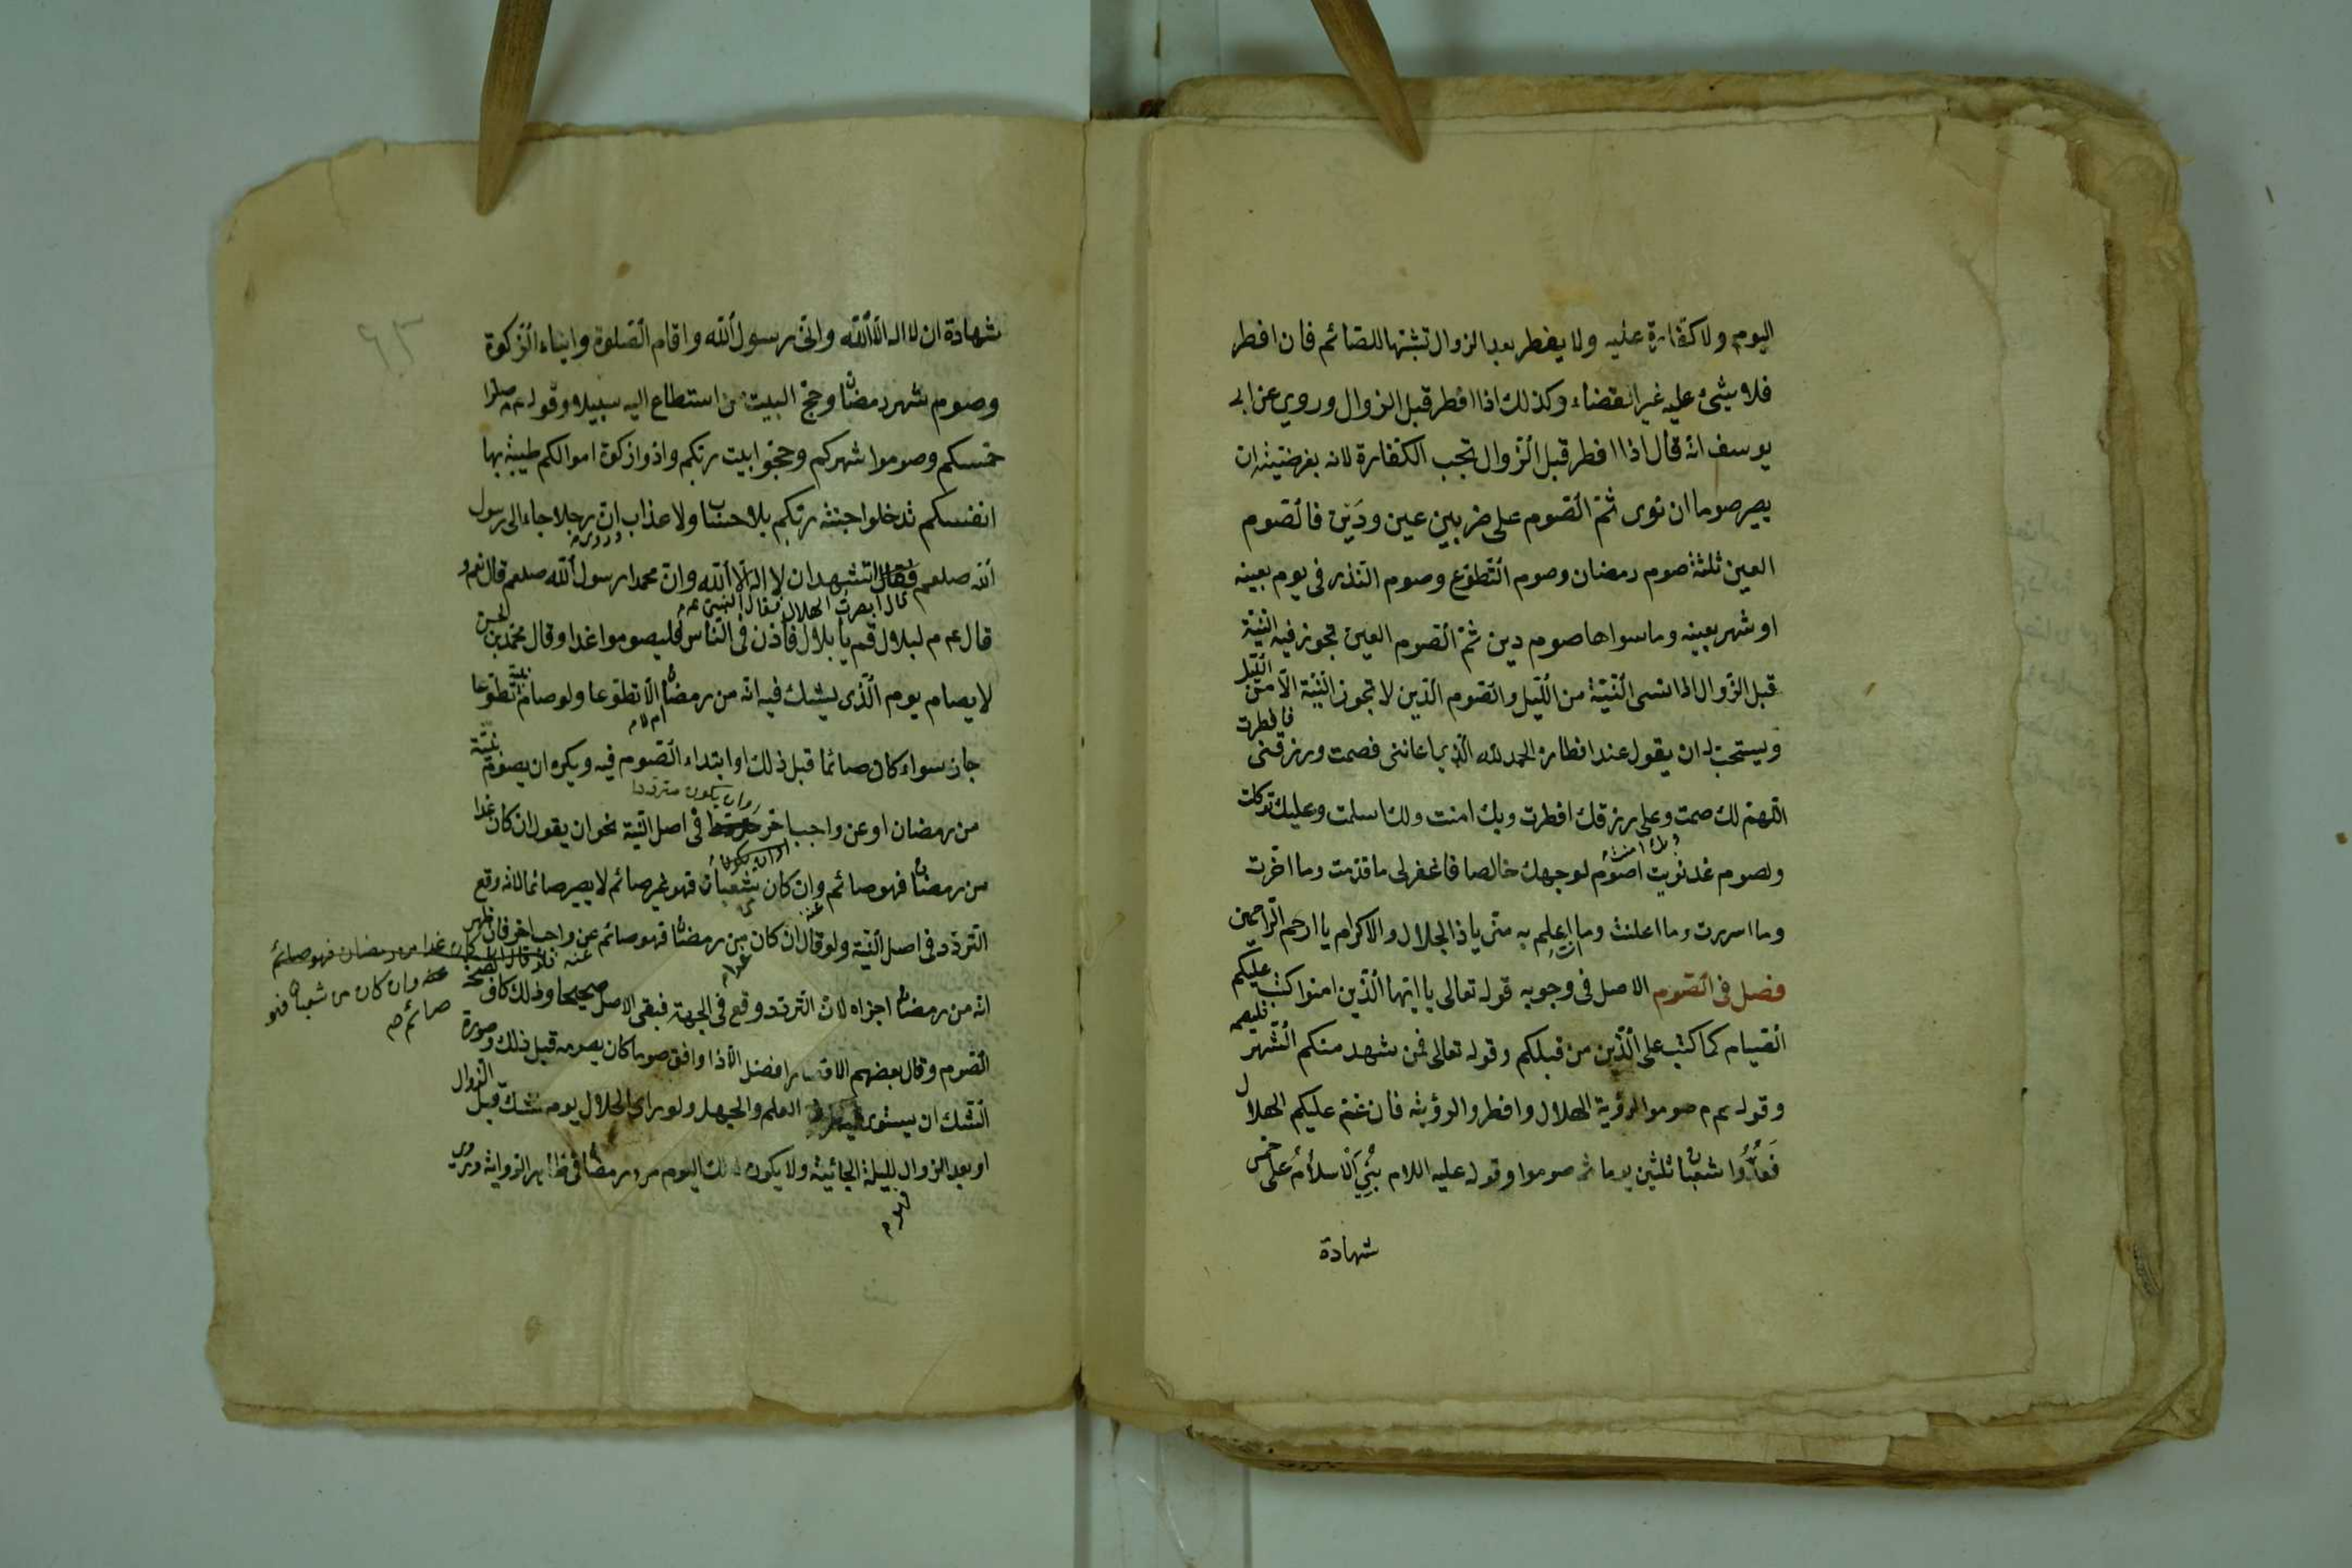 اليوم ولا كفارة عليه ولا يفطر بعد الزوال تشبها للصائم فان افطر
فلا شيئ عليه غير القضاء وكذلك اذا افطر قبل الزوال وروي عن ابى
يوسف انه قال اذا افطر قبل الزوال تجب الكفارة لانه بفرضيته ان
يصير صوما ان نوى ثم الصوم على ضربين عين ودين فالصوم
العين ثلثة صوم رمضان وصوم التطوع وصوم النذر فى يوم بعينه
او شهر بعينه وما سواها صوم دين ثم الصوم العين تجوز فيه النية
قبل الزوال اذا نسى النية من الليل والصوم الدين لا تجوز النية الا من الليل
ويستحب له ان يقول عند افطاره الحمد لله الذى اعاننى فصمت ورزقنى فافطرت
اللهم لك صمت وعلى رزقك افطرت وبك امنت ولك اسلمت وعليك توكلت
ولصوم غد نويت اصوم لوجهك خالصا فاغفر لى ما قدمت وما اخرت
وما اسررت وما اعلنت وما انت اعلم به منى يا ذا الجلال والاكرام يا ارحم الراحمين
فصل فى الصوم الاصل فى وجوبه قوله تعالى يا ايها الذين امنوا كتب عليكم
الصيام كما كتب على الذين من قبلكم وقوله تعالى فمن شهد منكم الشهر فليصمه
وقوله عم م صوموا لرؤية الهلال وافطروا لرؤيته فان غم عليكم الهلال
فعدوا شعبان ثلثين يوما ثم صوموا وقوله عليه اللام بني الاسلام على خمس
شهادة
٦٣
شهادة ان لا اله الا الله وانى رسول الله واقام الصلوة وايتاء الزكوة
وصوم شهر رمضان وحج البيت من استطاع اليه سبيلا وقوله عم صلوا
خمسكم وصوموا شهركم وحجوا بيت ربكم وادوا زكوة اموالكم طيبة بها
انفسكم تدخلوا جنة ربكم بلا حساب ولا عذاب ان رجلا جاء الى رسول
الله صلعم فقال اتشهد ان لا اله الا الله وان محمدا رسول الله صلعم قال نعم و
قال ابصرت الهلال فقال النبى عم
قال عم م لبلال قم يا بلال فأذن فى الناس فليصوموا غدا وقال محمد بن الحسن
لا يصام يوم الذى يشك فيه انه من رمضان الا تطوعا ولو صام بنية تطوعا
جاز سواء كان صائما قبل ذلك او ابتداء الصوم فيه ويكره ان يصوم بنية
وان يكون مترددا
من رمضان او عن واجب اخر فى اصل النية نحو ان يقول ان كان غدا
من رمضان فهو صائم وان كان شعبان فهو غير صائم لا يصير صائما لانه وقع
التردد فى اصل النية ولو قال ان كان من رمضان فهو صائم عن واجب اخر فان ظهر
كان غدا من رمضان فهو صائم
عنه وان كان من شعبان فهو
صائم صح
انه من رمضان اجزاه لان التردد وقع فى الجهة فبقى الاصل صحيحا وذلك كاف لصحة
الصوم وقال بعضهم الافطار افضل الا اذا وافق صوما كان يصومه قبل ذلك وصورة
الشك ان يستوى العلم والجهل ولو راى الهلال يوم شك قبل الزوال
او بعد الزوال لليلة الجائية ولا يكون ذلك اليوم من رمضان فى ظاهر الرواية وروى